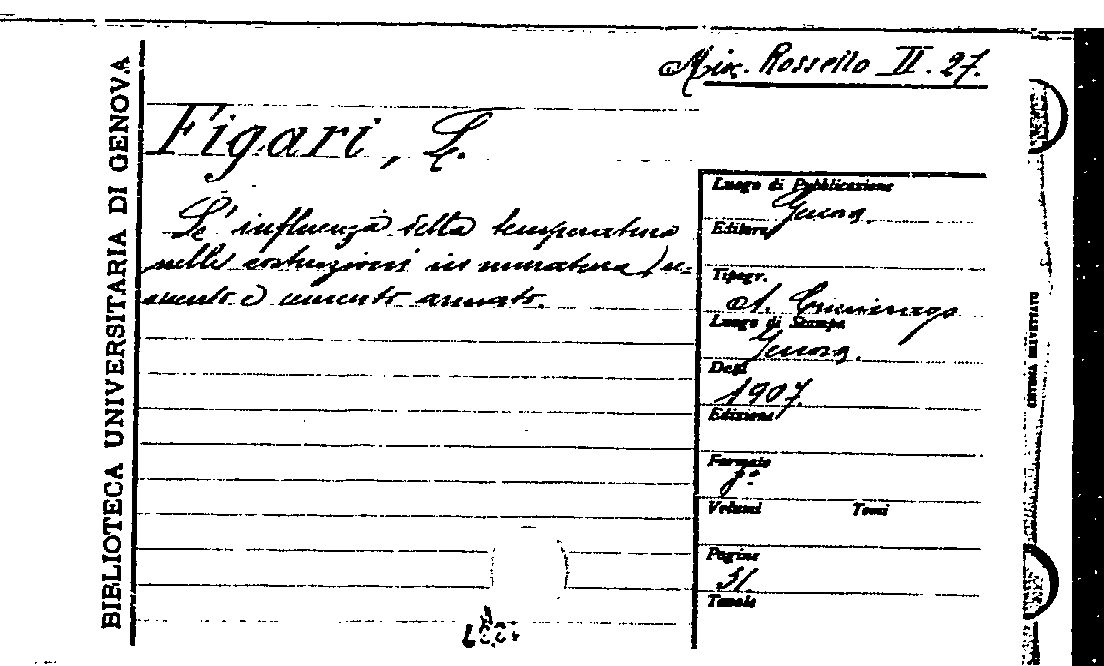 Misc. Rossello II. 27.
BIBLIOTECA UNIVERSITARIA DI GENOVA
Figari, L.
L'influenza della temperatura
nelle costruzioni in muratura, ce-
mento e cemento armato.
Luogo di Pubblicazione
Genova.
Editore
Tipogr.
A. Ciminago
Luogo di Stampa
Genova.
Degl
1907.
Edizione
Formato
Volumi Tomi
Pagine
31
Tavole